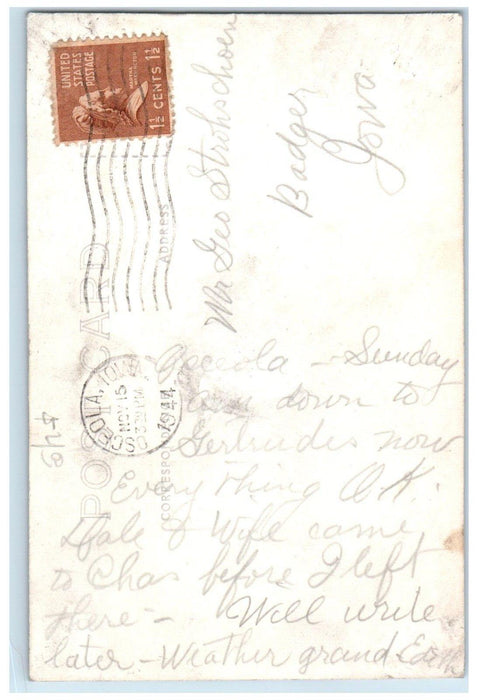 UNITED
STATES
POSTAGE
MARTHA
WASHINGTON
1½ CENTS 1½
POST CARD
ADDRESS
CORRESPONDENCE
OSCEOLA, IOWA
NOV 15
3 30 PM
1944
Mr Geo Strohschoen
Badger
Iowa
Osceola - Sunday
am down to
Gertrudes now
Everything O.K.
Dale & Wife came
to Chas before I left
there - Will write
later - Weather grand Edith